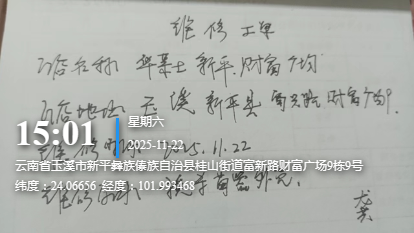 维修工单
门店名称 华莱士 新平.财富广场
门店地址 玉溪 新平县 富新路 财富广场.
15:01
星期六
2025-11-22
维修时间 2025.11.22
云南省玉溪市新平彝族傣族自治县桂山街道富新路财富广场9栋9号
纬度：24.06656 经度：101.993468